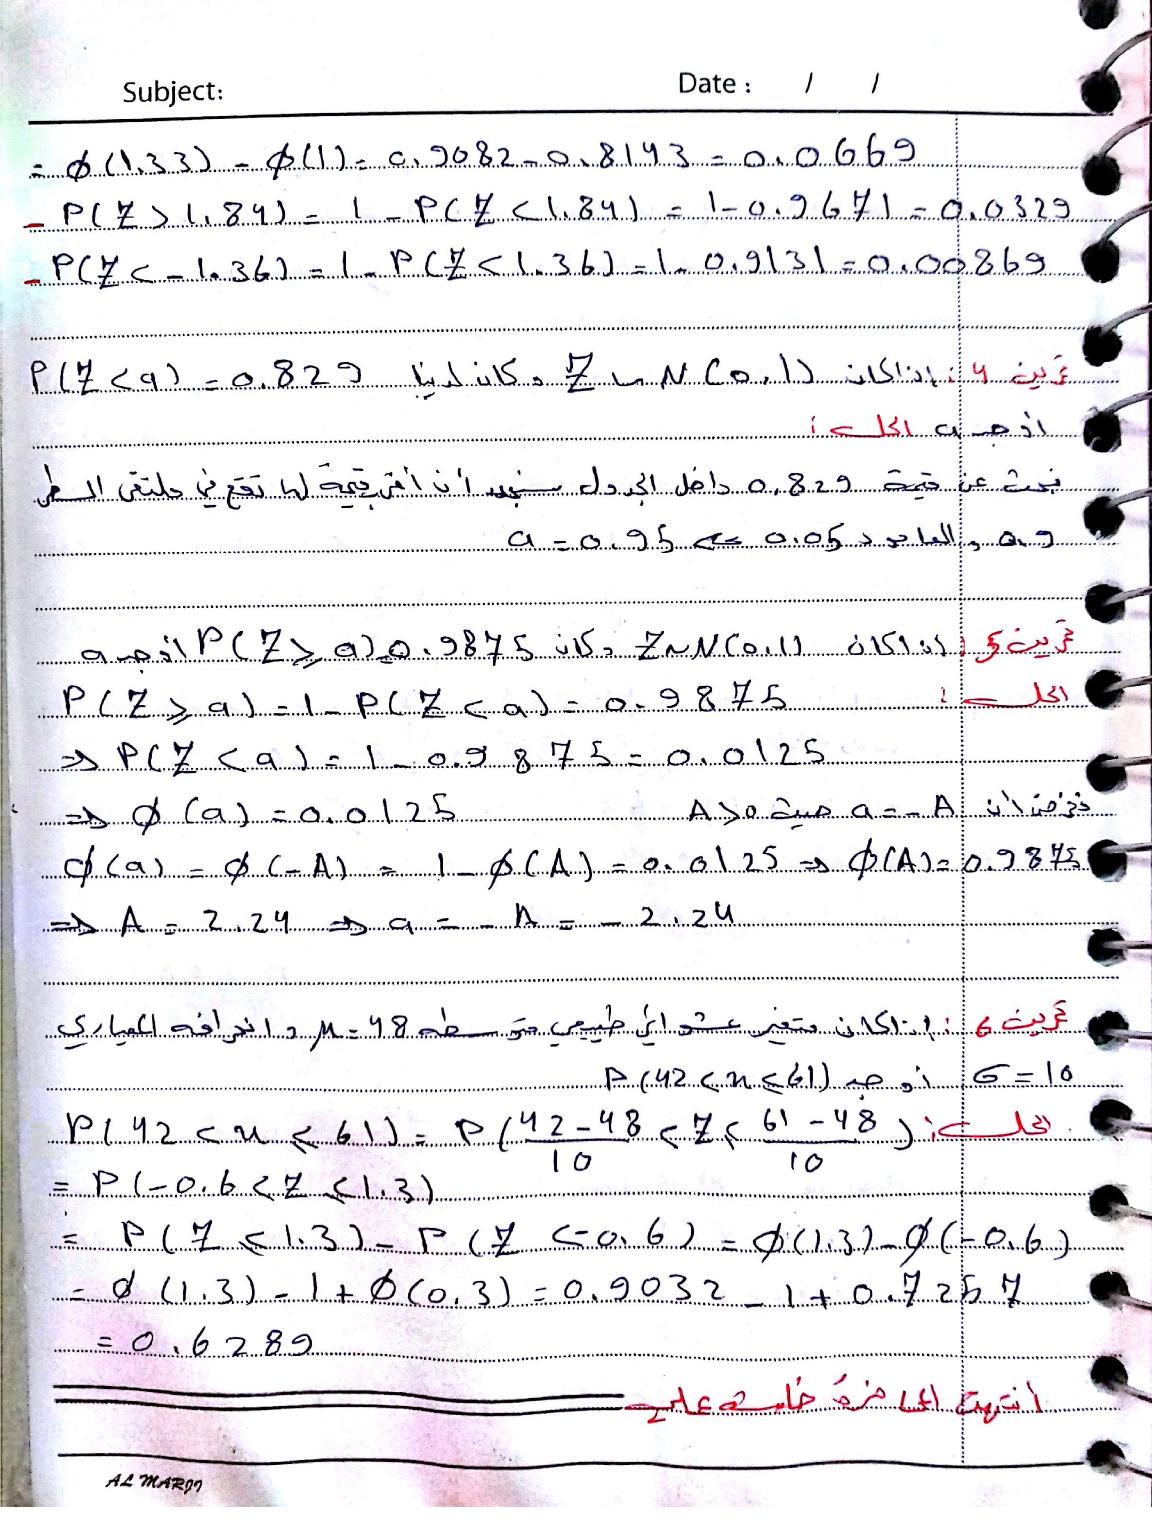 Subject:
Date : / /
= φ(1.33) - φ(1) = 0.9082 - 0.8143 = 0.0669
- P(Z > 1.84) = 1 - P(Z < 1.84) = 1 - 0.9671 = 0.0329
- P(Z < -1.36) = 1 - P(Z < 1.36) = 1 - 0.9131 = 0.00869
تمرين 4 : إذا كان Z ~ N(0,1) و كان لدينا P(Z < a) = 0.829
أوجد a الحل :
نبحث عن قيمة 0.829 داخل الجدول سنجد أن أقرب قيمة لها تقع في ملتقى السطر
0.9 و العامود 0.05 => a = 0.95
تمرين 5 : إذا كان Z ~ N(0,1) و كان P(Z ≥ a) = 0.9875 أوجد a
الحل :
P(Z ≥ a) = 1 - P(Z < a) = 0.9875
=> P(Z < a) = 1 - 0.9875 = 0.0125
=> φ(a) = 0.0125 نفرض أن a = -A حيث A > 0
φ(a) = φ(-A) = 1 - φ(A) = 0.0125 => φ(A) = 0.9875
=> A = 2.24 => a = -A = -2.24
تمرين 6 : إذا كان متغير عشوائي طبيعي متوسطه μ = 48 و انحرافه المعياري
σ = 10 أوجد P(42 < x ≤ 61)
الحل : P(42 < x ≤ 61) = P(42-48/10 < Z ≤ 61-48/10)
= P(-0.6 < Z ≤ 1.3)
= P(Z ≤ 1.3) - P(Z < -0.6) = φ(1.3) - φ(-0.6)
= φ(1.3) - 1 + φ(0.3) = 0.9032 - 1 + 0.7257
= 0.6289
انتهت المحاضرة خامسة عملي
AL MARJI